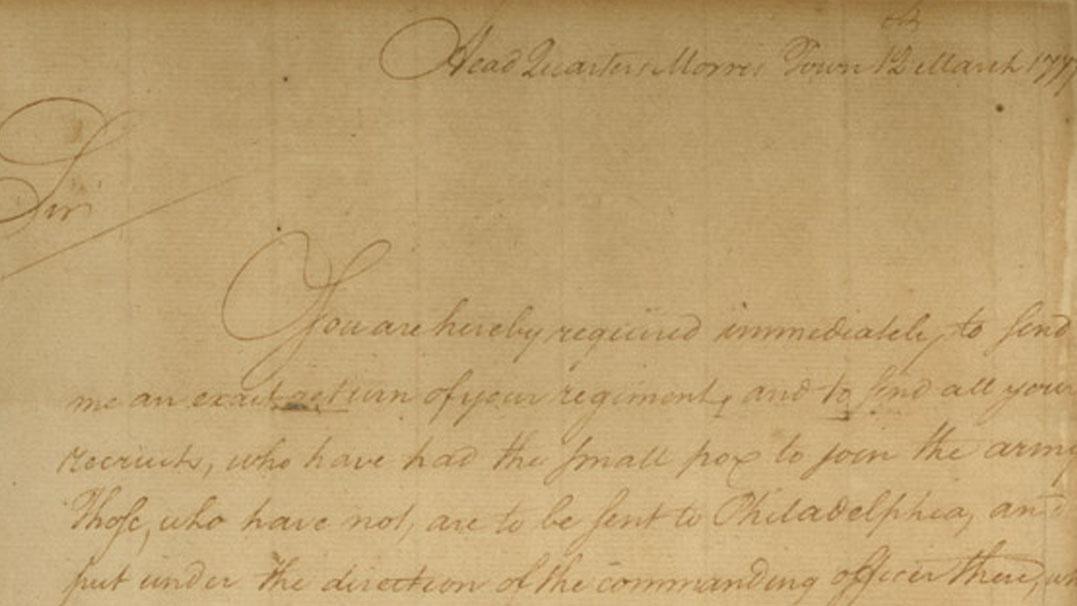 Head Quarters Morris Town 12th March 1777
Sir
You are hereby required immediately, to send
me an exact return of your regiment, and to send all your
recruits, who have had the small pox to join the army
Those, who have not, are to be sent to Philadelphia, and
put under the direction of the commanding officer there,